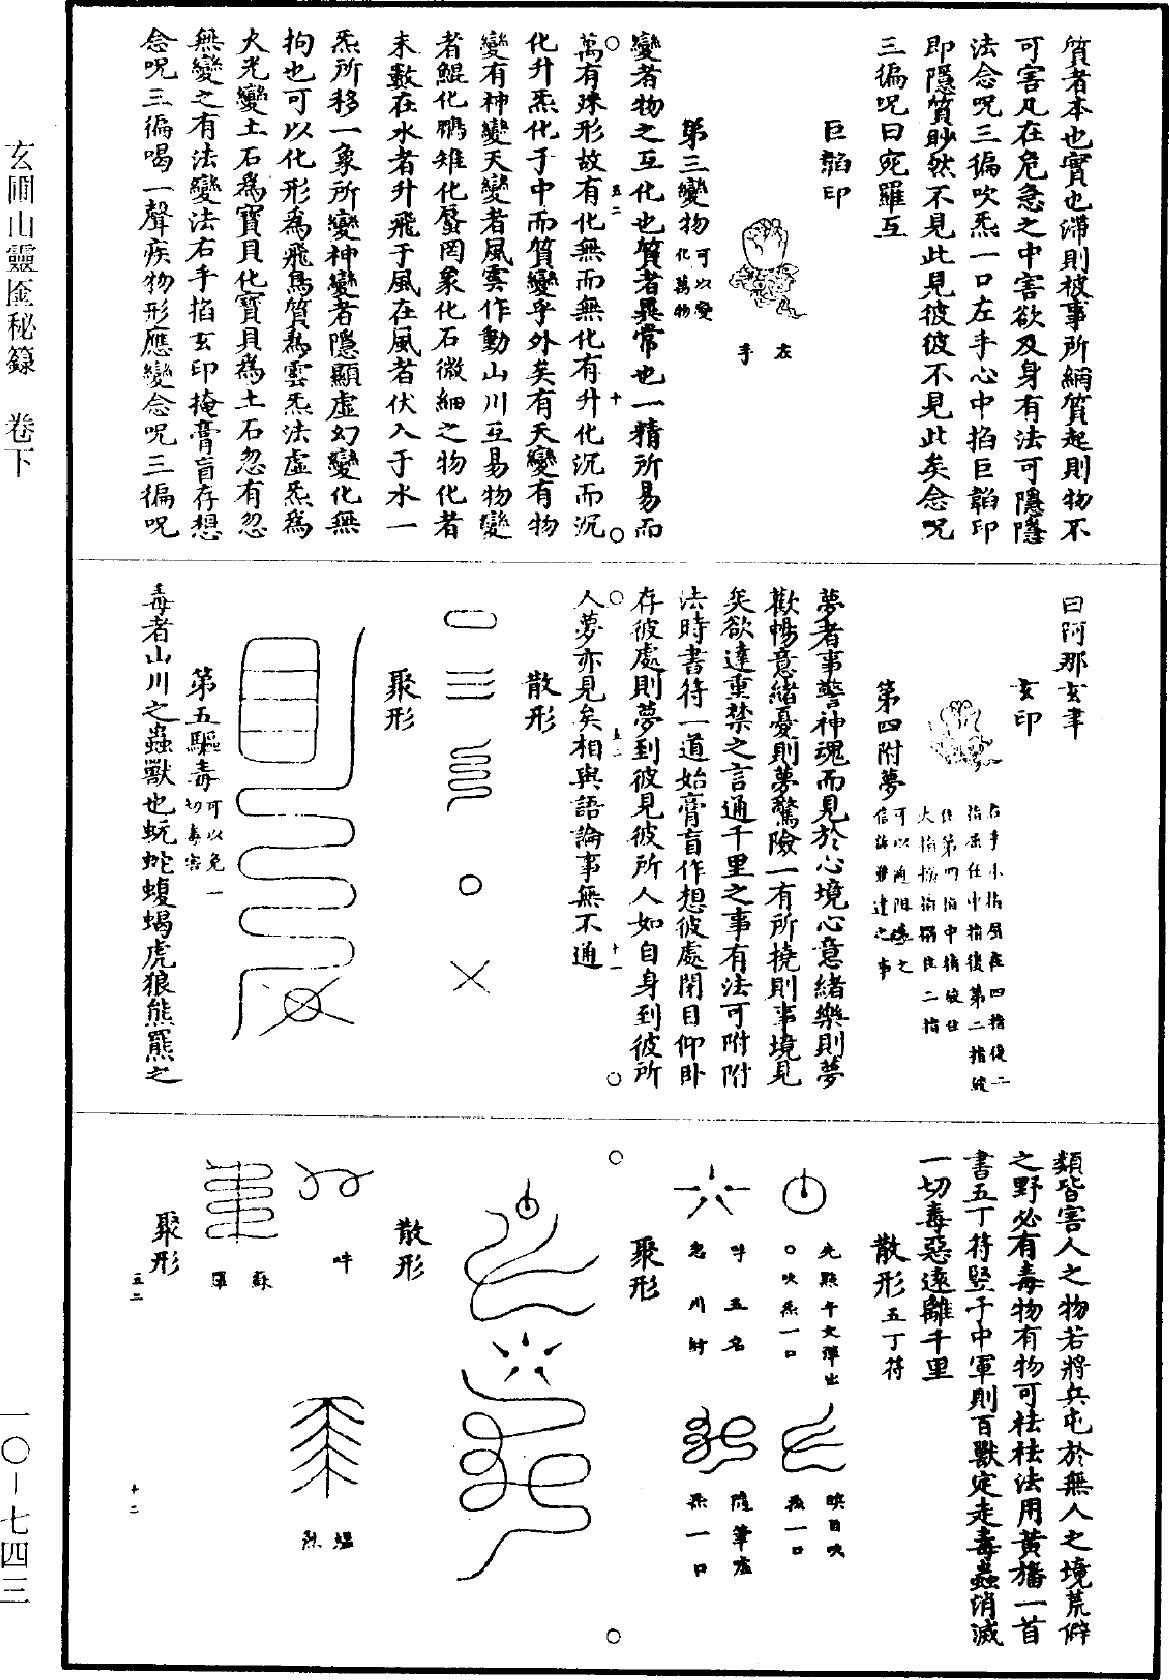 質者本也實也滯則被事所網質起則物不
可害凡在危急之中害欲及身有法可隱隱
法念呪三徧吹炁一口左手心中掐巨韜印
即隱質眇然不見此見彼彼不見此矣念呪
三徧呪曰宛羅互
巨韜印
左手
第三變物可以變化萬物
變者物之互化也質者異常也一精所易而
萬有殊形故有化無而無化有升化沉而沉
化升炁化于中而質變乎外矣有天變有物
變有神變天變者風雲作動山川互易物變
者鯤化鵬雉化蜃罔象化石微細之物化者
未數在水者升飛于風在風者伏入于水一
炁所移一象所變神變者隱顯虛幻變化無
拘也可以化形為飛鳥質為雲炁法虛炁為
火光變土石為寶貝化寶貝為土石忽有忽
無變之有法變法右手掐玄印掩膏肓存想
念呪三徧喝一聲疾物形應變念呪三徧呪
五二
十
曰阿那玄聿
玄印
右手小指屈在四指後二
指壓在中指後第二指紋
大指掐
第四附夢
夢者事警神魂而見於心境心意緒樂則夢
歡暢意緒憂則夢驚險一有所撓則事境見
矣欲達重禁之言通千里之事有法可附附
法時書符一道始膏肓作想彼處閉目仰卧
存彼處則夢到彼見彼所人如自身到彼所
人夢亦見矣相與語論事無不通
五二
十一
散形
聚形
第五驅毒可以免一切毒害
毒者山川之蟲獸也蚖蛇蝮蝎虎狼熊羆之
類皆害人之物若將兵屯於無人之境荒僻
之野必有毒物有物可祛祛法用黃旛一首
書五丁符竪于中軍則百獸定走毒蟲消滅
一切毒惡遠離千里
散形五丁符
先點午文彈出
〇吹炁一口
瞑目吹
炁一口
呼五名
隨筆虛
炁一口
聚形
散形
吽
蘇
囉
聚形
五二
十二
玄圃山靈匱秘籙　卷下
一〇－七四三